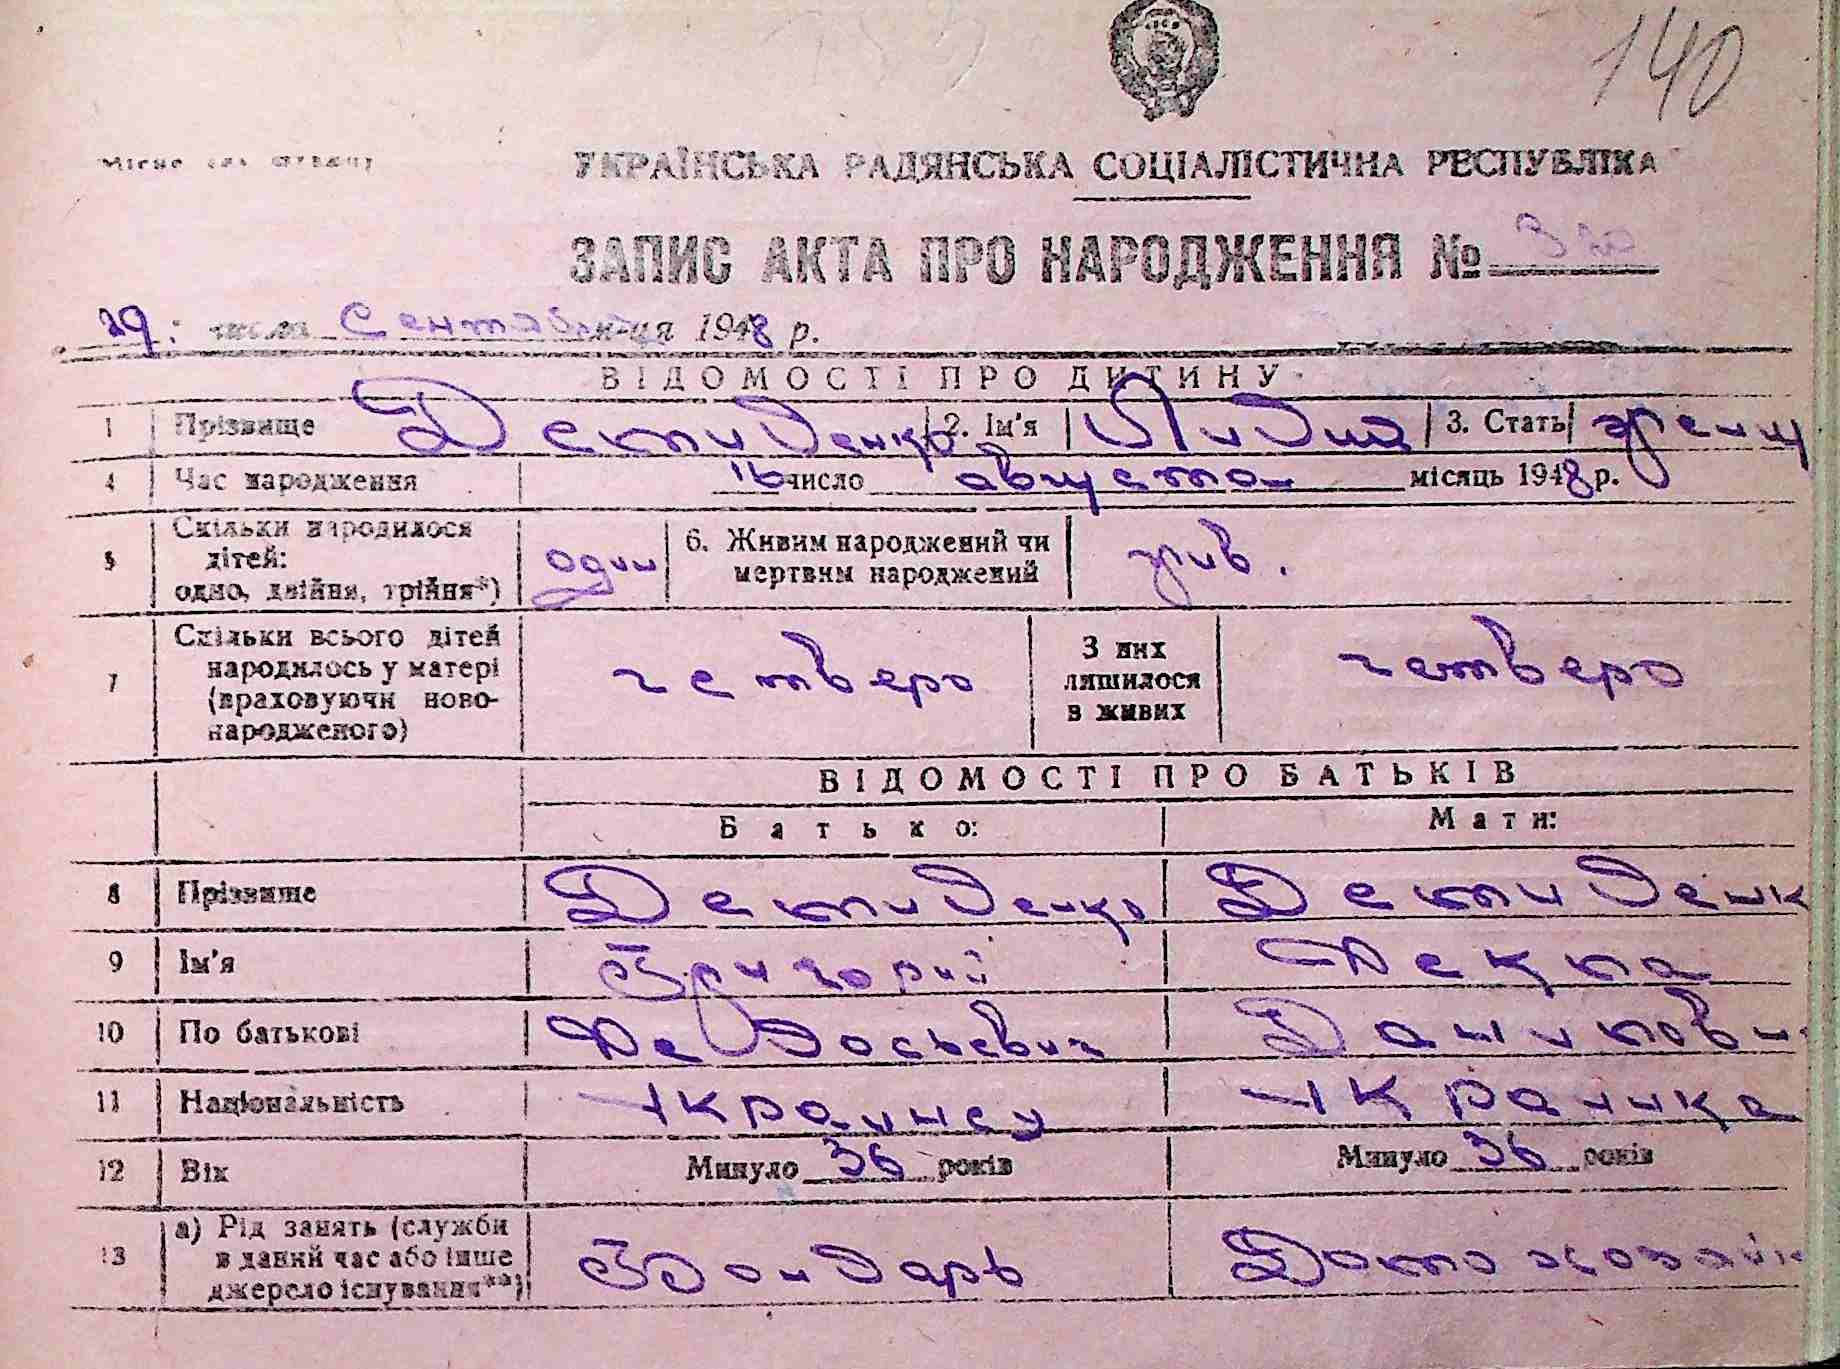 140
УКРАЇНСЬКА РАДЯНСЬКА СОЦІАЛІСТИЧНА РЕСПУБЛІКА
ЗАПИС АКТА ПРО НАРОДЖЕННЯ №
29. числа Сентября м-ця 1948 р.
ВІДОМОСТІ ПРО ДИТИНУ
1 Прізвище Демиденко 2. Ім'я Лидия 3. Стать женщ
4 Час народження 16 число августа місяць 1948 р.
5 Скільки народилося дітей: одно, двійня, трійня*) один 6. Живим народжений чи мертвим народжений жив.
7 Скільки всього дітей народилось у матері (враховуючи новонародженого) четверо З них лишилося в живих четверо
ВІДОМОСТІ ПРО БАТЬКІВ
Батько: Мати:
8 Прізвище Демиденко Демиденк
9 Ім'я Григорий Фекла
10 По батькові Федосьевич
11 Національність Украинец Украинка
12 Вік Минуло 36 років Минуло 36 років
13 а) Рід занять (служби в даний час або інше джерело існування**) Бондарь Домохозяйк